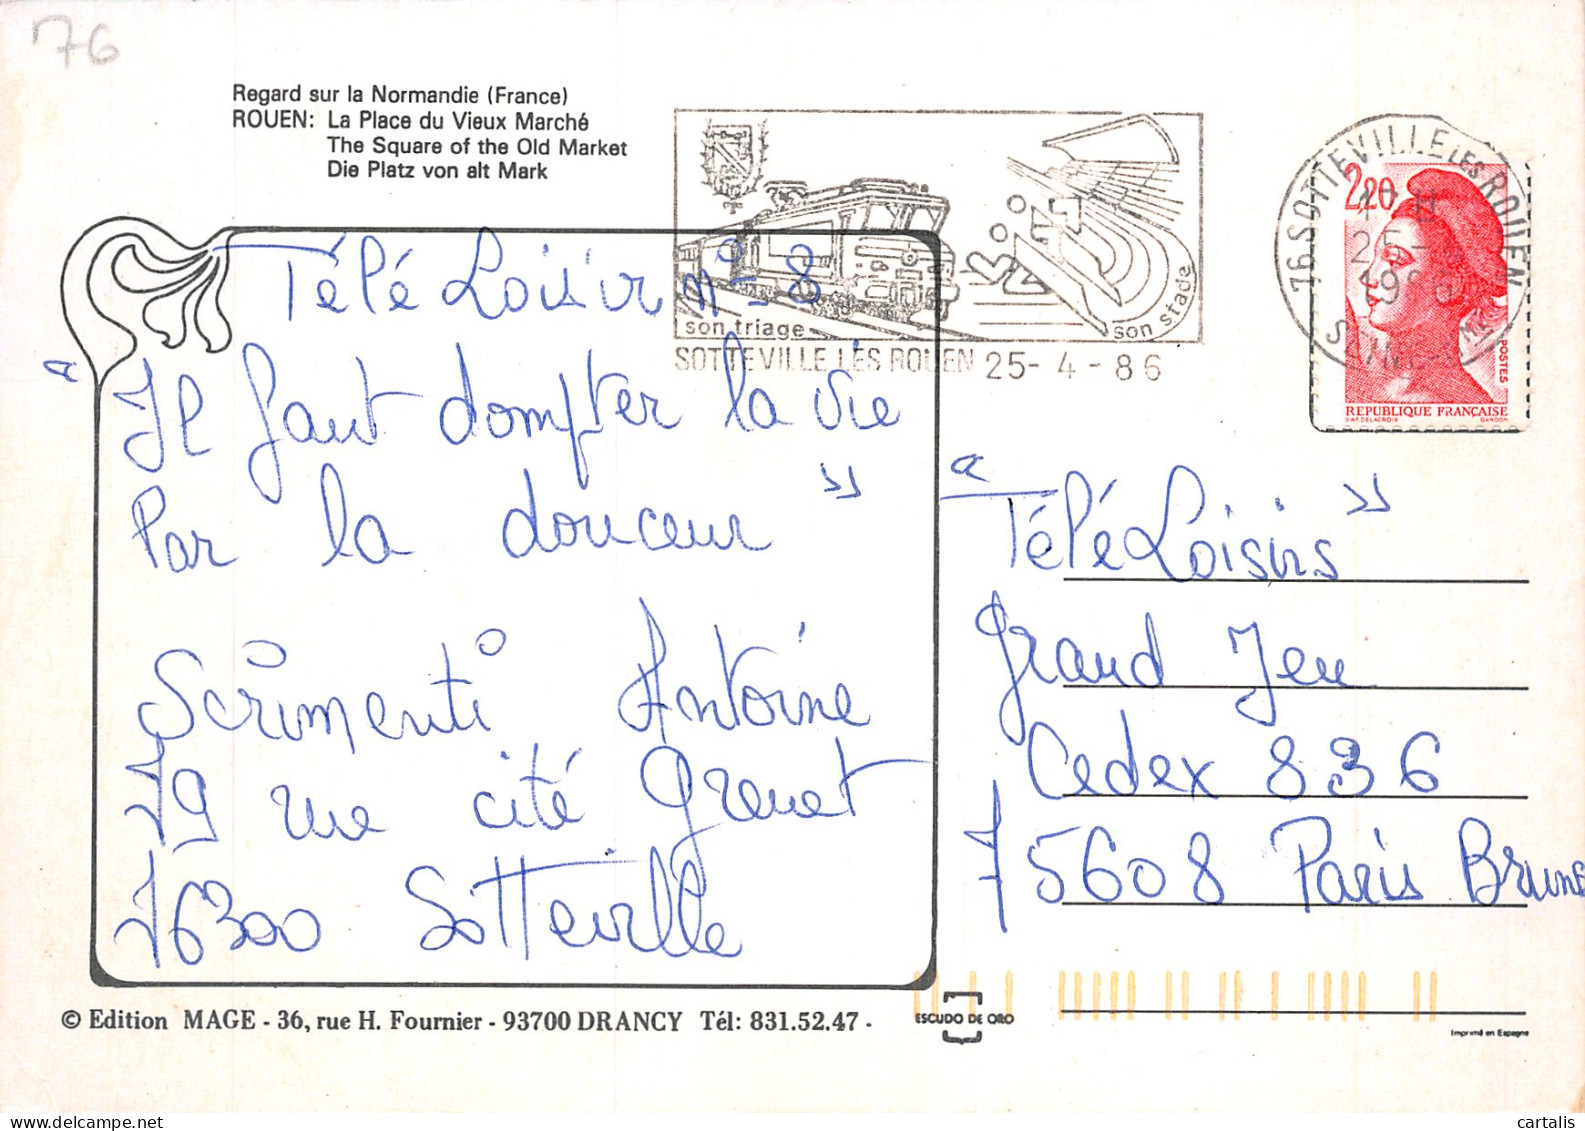 76
Regard sur la Normandie (France)
ROUEN: La Place du Vieux Marché
The Square of the Old Market
Die Platz von alt Mark
son triage
son stade
SOTTEVILLE LES ROUEN 25-4-86
76 SOTTEVILLE LES ROUEN
2,20
POSTES
REPUBLIQUE FRANÇAISE
Télé Loisir n° 8
" Il faut dompter la vie
Par la douceur "
Scrimenti Antoine
79 rue cité Grenet
76300 Sotteville
" Télé Loisirs "
Grand Jeu
Cedex 836
75608 Paris Brune
© Edition MAGE - 36, rue H. Fournier - 93700 DRANCY Tél: 831.52.47 -
ESCUDO DE ORO
Imprimé en Espagne
cartalis